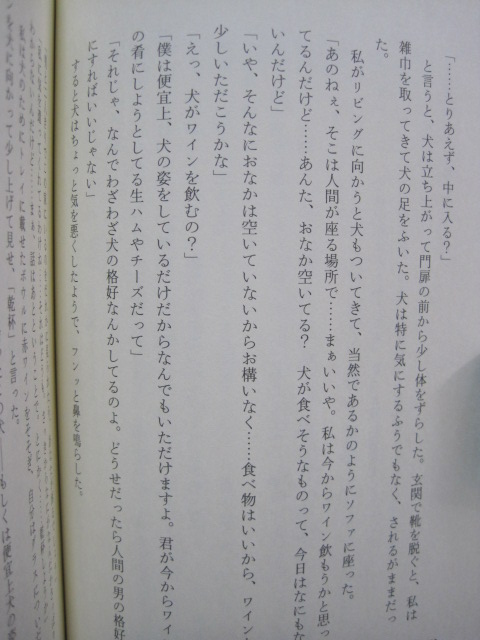 「……とりあえず、中に入る？」
と言うと、犬は立ち上がって門扉の前から少し体をずらした。玄関で靴を脱ぐと、私は
雑巾を取ってきて犬の足をふいた。犬は特に気にするふうでもなく、されるがままだっ
た。
私がリビングに向かうと犬もついてきて、当然であるかのようにソファに座った。
「あのねぇ、そこは人間が座る場所で……まぁいいや。私は今からワイン飲もうかと思っ
てるんだけど……あんた、おなか空いてる？　犬が食べそうなものって、今日はなにもな
いんだけど」
「いや、そんなにおなかは空いていないからお構いなく……食べ物はいいから、ワイン
少しいただこうかな」
「えっ、犬がワインを飲むの？」
「僕は便宜上、犬の姿をしているだけだからなんでもいただけますよ。君が今からワイ
の肴にしようとしてる生ハムやチーズだって」
「それじゃ、なんでわざわざ犬の格好なんかしてるのよ。どうせだったら人間の男の格好
にすればいいじゃない」
すると犬はちょっと気を悪くしたようで、フンッと鼻を鳴らした。
犬のためにトレイに載せたボウルに赤ワインをそそぎ、自分は
に向かって少し上げて見せ、「乾杯」と言った。
もしくは便宜上犬の